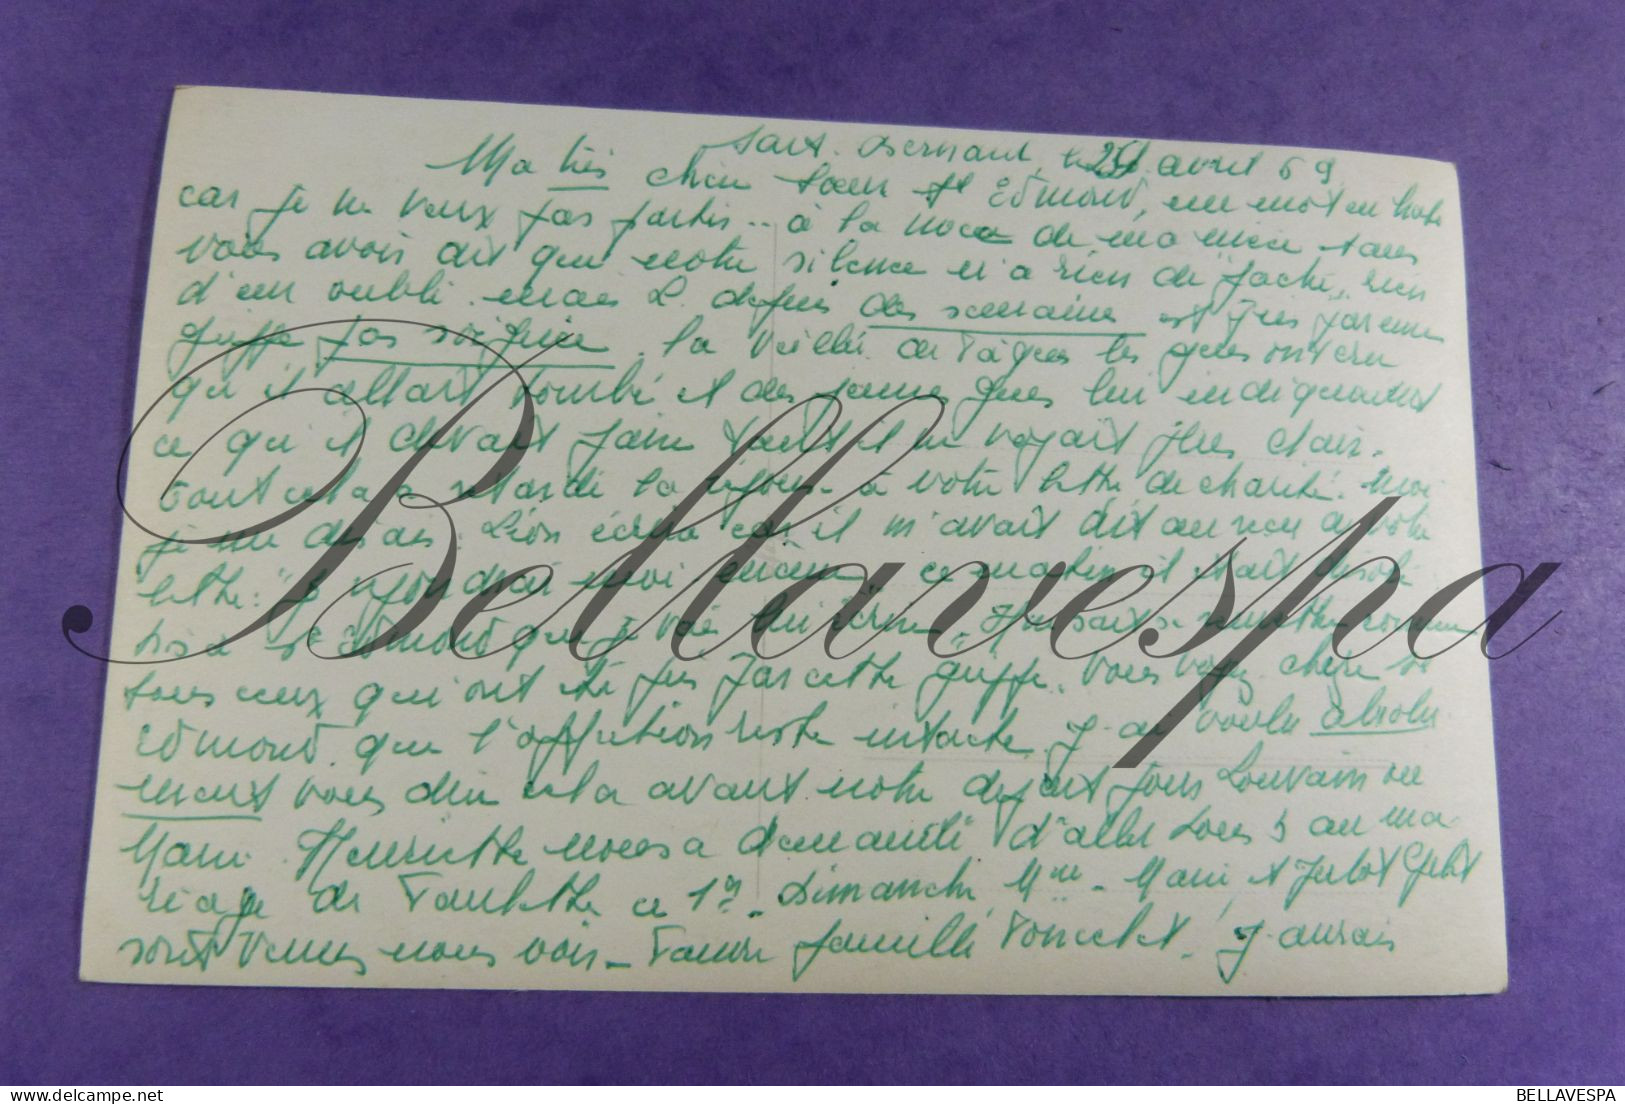 Sart-Bernard, le avril 69
Ma très chère Sœur St Edmond, un mot en hâte
car je ne veux pas partir .. à la noce de ma nièce sans
vous avoir dit que notre silence n'a rien de "faché", rien
d'un oubli. mais L. depuis des semaines est pris par une
grippe pas soignée. la veille de Pâques les gens ont cru
qu'il allait tomber et des jeunes gens lui indiquaient
ce qu'il devait faire tant il ne voyait plus clair.
Tout cela a retardé la réponse à votre lettre de charité. Moi
je me disais Léon écrira car il m'avait dit au reçu de votre
lettre: "je répondrai moi même" ce matin il était désolé
dis à St Edmond que je vais lui écrire. Il se remettre comme
tous ceux qui ont été pris par cette grippe. Vous voyez chère St
Edmond que l'affection reste intacte J'ai voulu absolu
ment vous dire cela avant notre départ pour Louvain ou
Marie Henriette nous a demandé d'aller tous 3 au ma-
riage de Paulette ce 1er. Dimanche, Mme. Marie et
sont venus nous voir. Pauvre famille Poncelet. J'aurais
Bellavespa
BELLAVESPA
delcampe.net